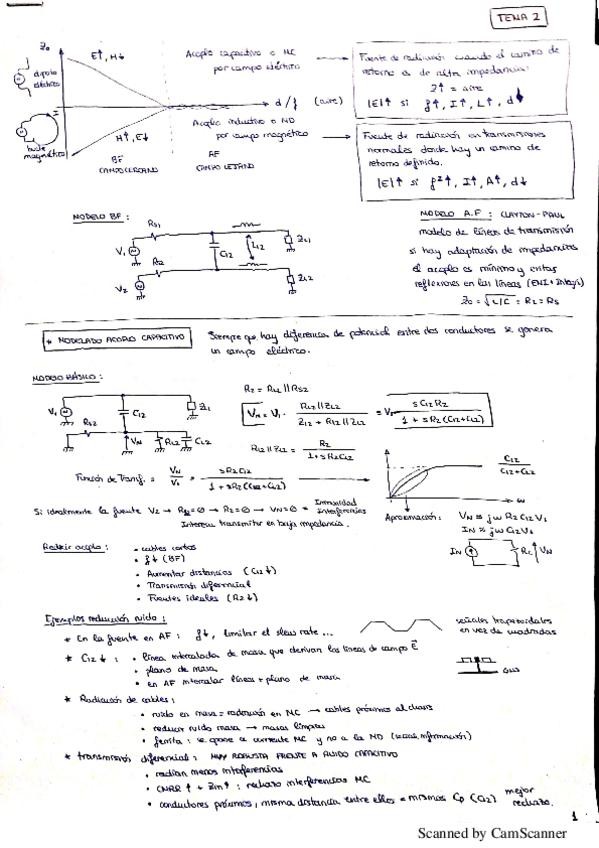 TEMA 2
Z0
E↑, H↓
dipolo
eléctrico
bucle
magnético
I
H↑, E↓
BF
CAMPO CERCANO
AF
CAMPO LEJANO
d/λ (aire)
Acoplo capacitivo o MC
por campo eléctrico
Acoplo inductivo o MD
por campo magnético
Fuente de radiación cuando el camino de
retorno es de alta impedancia.
Z↑ = aire
|E|↑ si f↑, I↑, L↑, d↓
Fuente de radiación en transmisiones
normales donde hay un camino de
retorno definido.
|E|↑ si f²↑, I↑, A↑, d↓
MODELO BF:
RS1
V1
R2
V2
C12
L12
ZL1
ZL2
MODELO A.F: CLAYTON-PAUL
modelo de líneas de transmisión
si hay adaptación de impedancias
el acoplo es mínimo y evitas
reflexiones en las líneas
Z0 = √L/C = RL = RS
* MODELADO ACOPLO CAPACITIVO
Siempre que hay diferencia de potencial entre dos conductores se genera
un campo eléctrico.
MODELO BÁSICO:
V1
RS2
C12
ZL1
VN
RL2
CL2
R2 = RL2 // RS2
Función de Transf. = VN/V1 = sR2C12 / 1 + sR2(C12+CL2)
C12 / C12+CL2
ω
Si idealmente la fuente V2 → RS2=0 → R2=0 → VN=0 = Inmunidad
Interferencias
Interesa transmitir en baja impedancia.
Aproximación: VN ≈ jω R2 C12 V1
IN ≈ jω C12 V1
IN
VN
Reducir acoplo:
• cables cortos
• f↓ (BF)
• Aumentar distancias (C12↓)
• Transmisión diferencial
• Fuentes ideales (R2↓)
Ejemplos reducción ruido:
* En la fuente en AF: f↓, limitar el slew rate...
señales trapezoidales
en vez de cuadradas
* C12↓: • línea intercalada de masa que derivan las líneas de campo E
• plano de masa
• en AF intercalar líneas + plano de masa
GND
* Radiación de cables:
• ruido en masa = radiación en MC → cables próximos al chasis
• reducir ruido masa → masas limpias
• ferrita: se opone a corriente MC y no a la MD
* transmisión diferencial: MUY ROBUSTA FRENTE A RUIDO CAPACITIVO
• radian menos interferencias
• CMRR↑ + Zin↑: rechazo interferencias MC
• conductores próximos, misma distancia entre ellos = mismas Cp (C12) mejor
rechazo.
1
Scanned by CamScanner